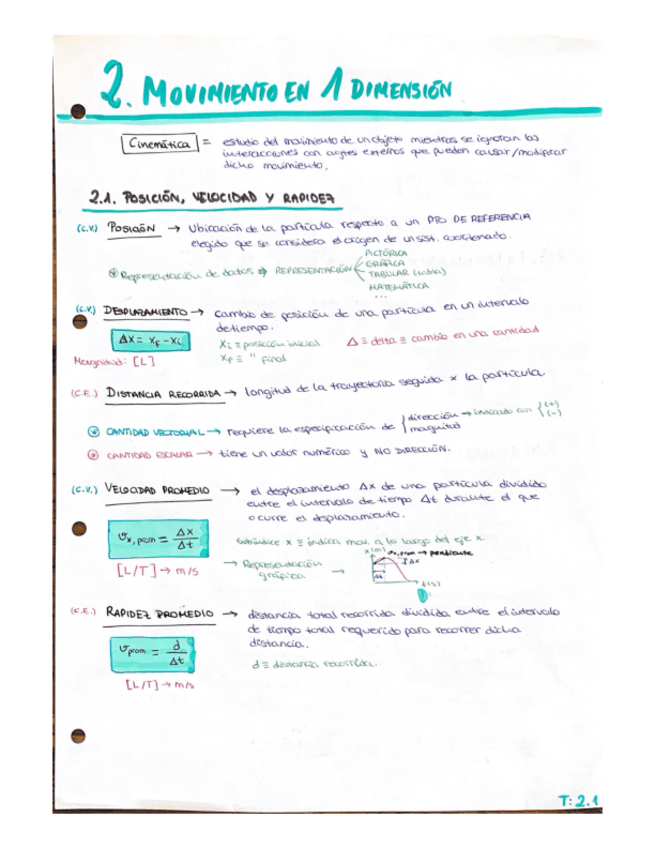 2. MOVIMIENTO EN 1 DIMENSIÓN
Cinemática = estudio del movimiento de un objeto mientras se ignoran las
interacciones con agtes externos que pueden causar/modificar
dicho movimiento.
2.1. POSICIÓN, VELOCIDAD Y RAPIDEZ
(C.V.) POSICIÓN → Ubicación de la partícula respecto a un PTO DE REFERENCIA
elegido que se considera el origen de un sist. coordenado.
PICTÓRICA
GRÁFICA
* Representación de datos → REPRESENTACIÓN TABULAR (tablas)
MATEMÁTICA
...
(C.V.) DESPLAZAMIENTO → cambio de posición de una partícula en un intervalo
de tiempo.
Δx = xf - xi
xi ≡ posición inicial Δ ≡ delta ≡ cambio en una cantidad
xf ≡ " final
Magnitud: [L]
(C.E.) DISTANCIA RECORRIDA → longitud de la trayectoria seguida x la partícula.
* CANTIDAD VECTORIAL → requiere la especificación de { dirección → indicada con { (+) (-)
magnitud
* CANTIDAD ESCALAR → tiene un valor numérico y NO DIRECCIÓN.
(C.V.) VELOCIDAD PROMEDIO → el desplazamiento Δx de una partícula dividido
entre el intervalo de tiempo Δt durante el que
ocurre el desplazamiento.
vx, prom = Δx/Δt
Subíndice x ≡ indica mov. a lo largo del eje x.
[L/T] → m/s
→ Representación gráfica →
x(m) vx, prom → pendiente
Δx
Δt
t(s)
(C.E.) RAPIDEZ PROMEDIO → distancia total recorrida dividida entre el intervalo
de tiempo total requerido para recorrer dicha
distancia.
vprom = d/Δt
d ≡ distancia recorrida.
[L/T] → m/s
T: 2.1